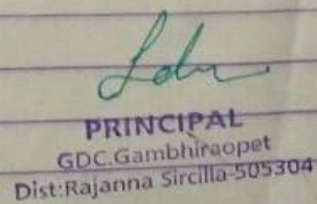 PRINCIPAL
GDC.Gambhiraopet
Dist:Rajanna Sircilla-505304